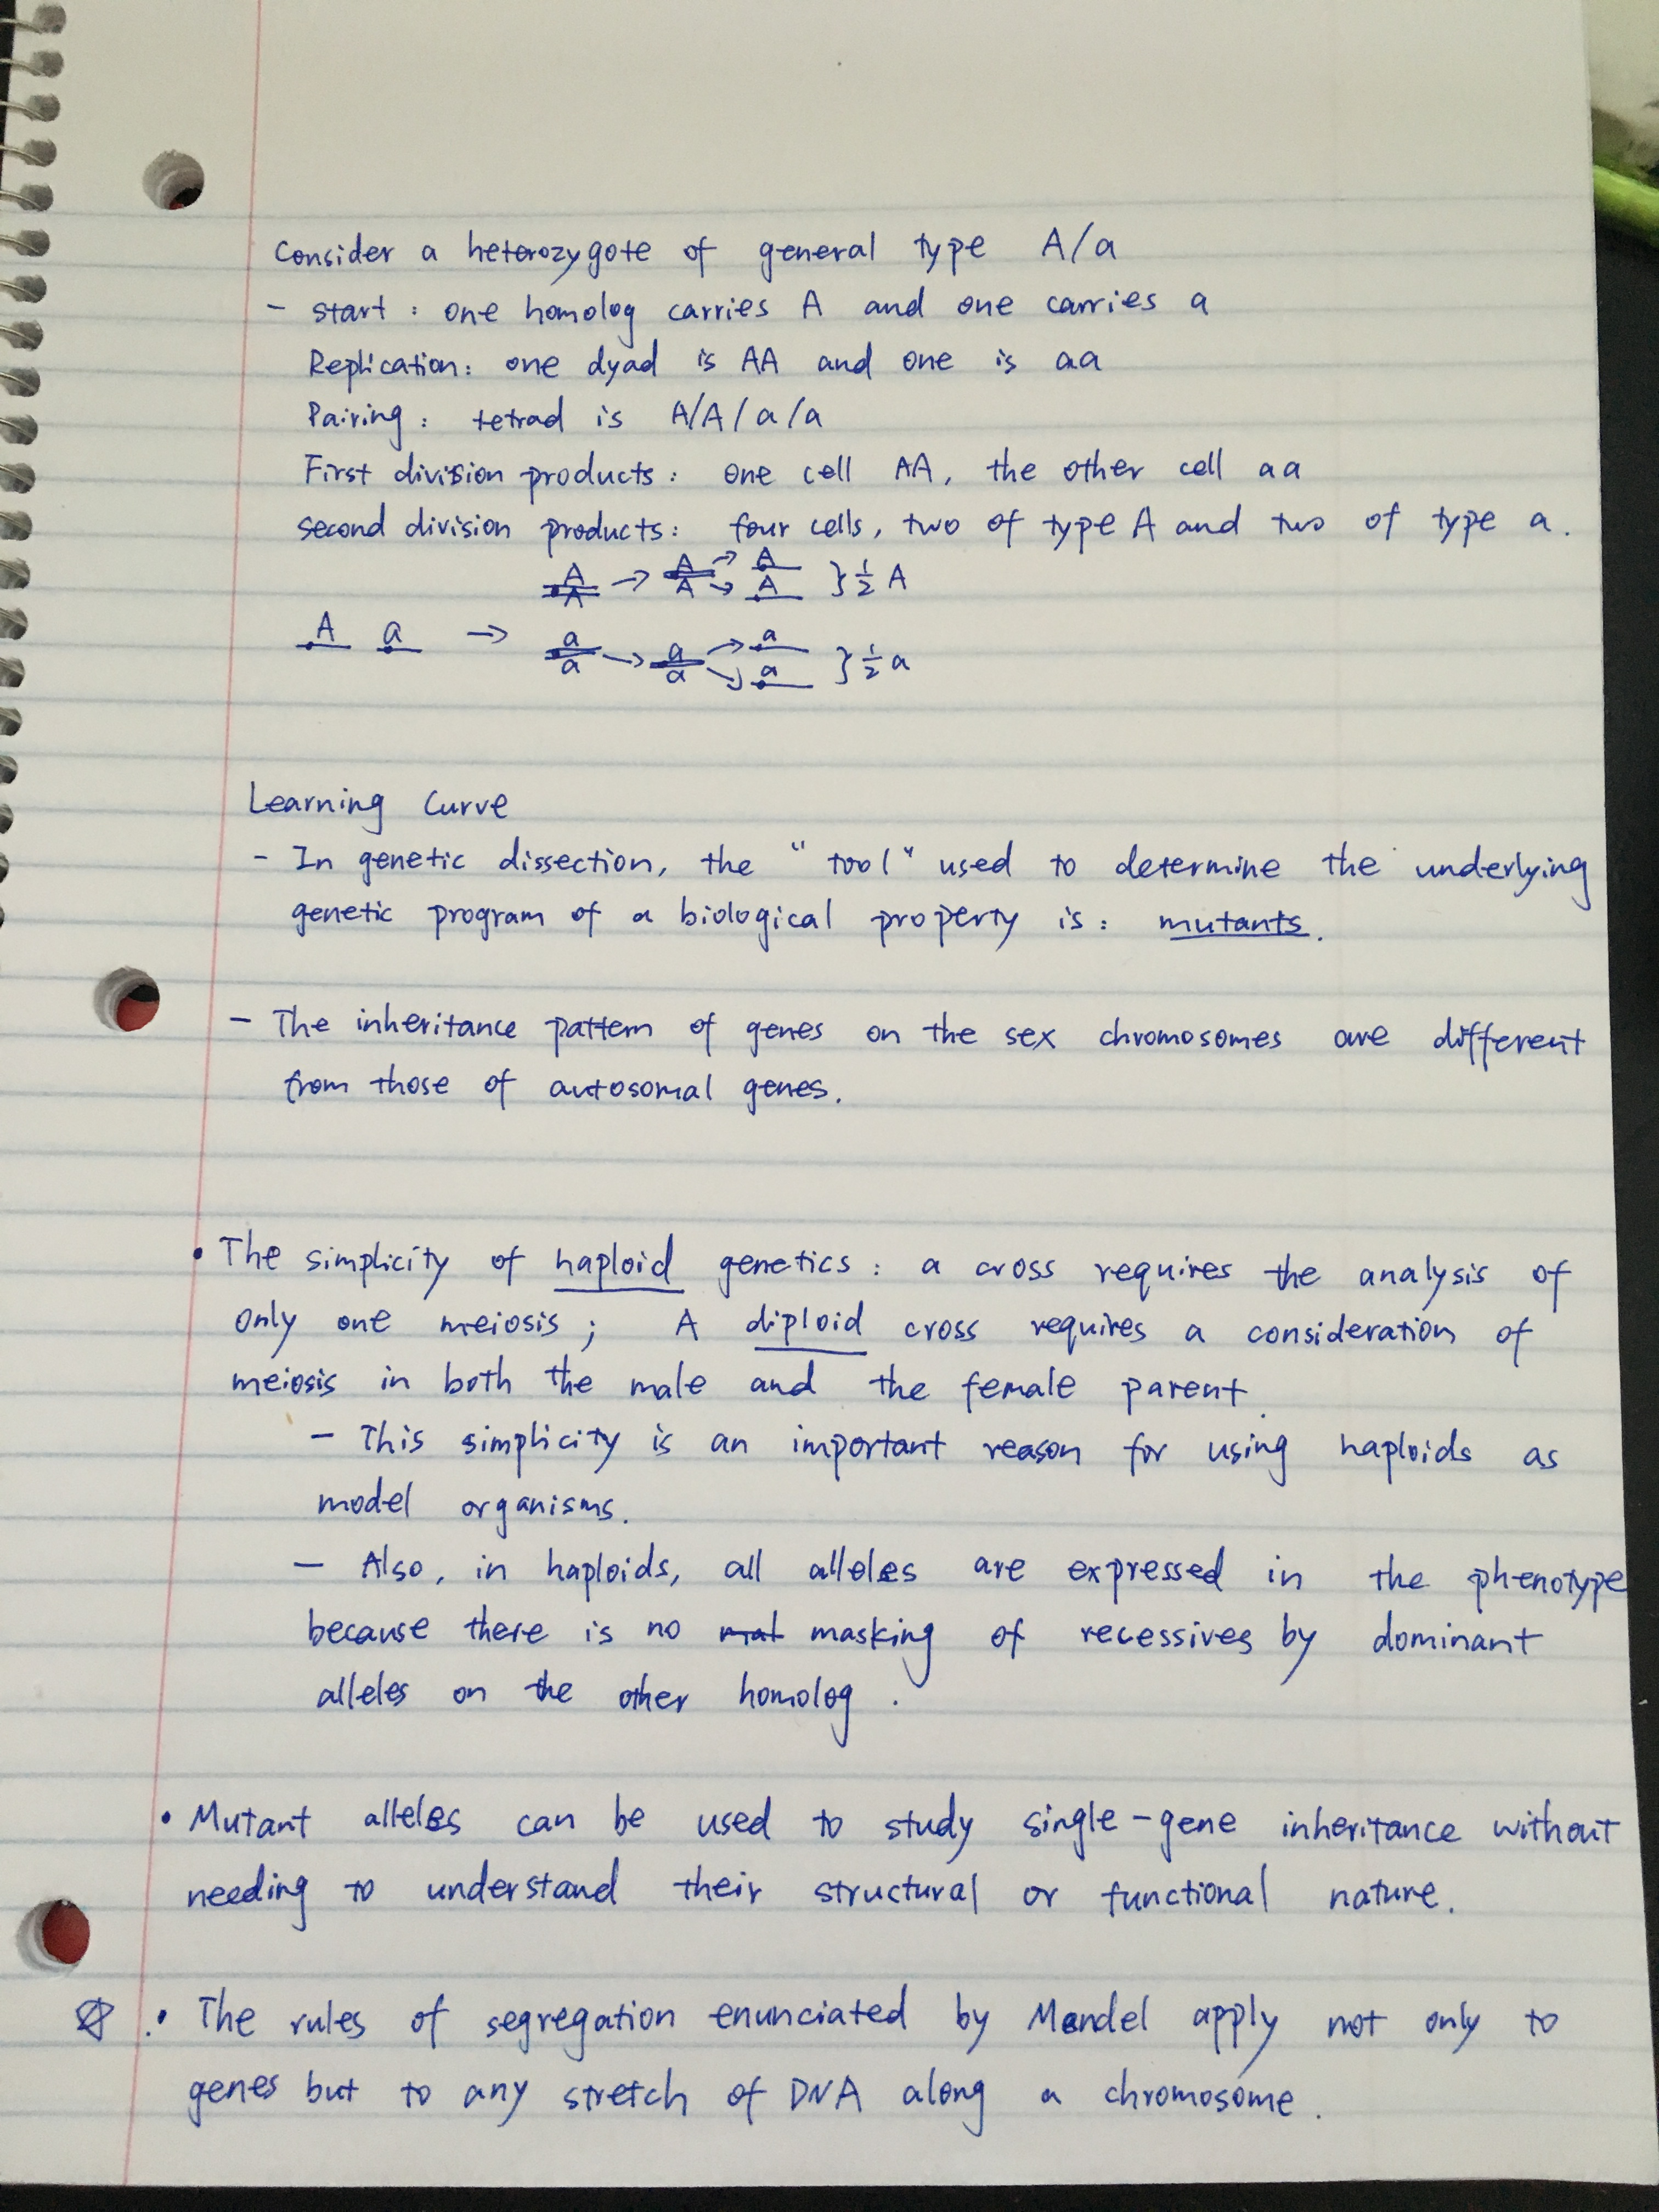 Consider a heterozygote of general type A/a
- start : one homolog carries A and one carries a
Replication: one dyad is AA and one is aa
Pairing : tetrad is A/A/a/a
First division products : one cell AA, the other cell aa
second division products : four cells, two of type A and two of type a.
A → A → A } 1/2 A
A A A
A a → a → a → a } 1/2 a
a a a
Learning Curve
- In genetic dissection, the "tool" used to determine the underlying
genetic program of a biological property is : mutants.
- The inheritance pattern of genes on the sex chromosomes are different
from those of autosomal genes.
• The simplicity of haploid genetics : a cross requires the analysis of
only one meiosis ; A diploid cross requires a consideration of
meiosis in both the male and the female parent.
- This simplicity is an important reason for using haploids as
model organisms.
- Also, in haploids, all alleles are expressed in the phenotype
because there is no mat masking of recessives by dominant
alleles on the other homolog .
• Mutant alleles can be used to study single-gene inheritance without
needing to understand their structural or functional nature.
☆ • The rules of segregation enunciated by Mendel apply not only to
genes but to any stretch of DNA along a chromosome.